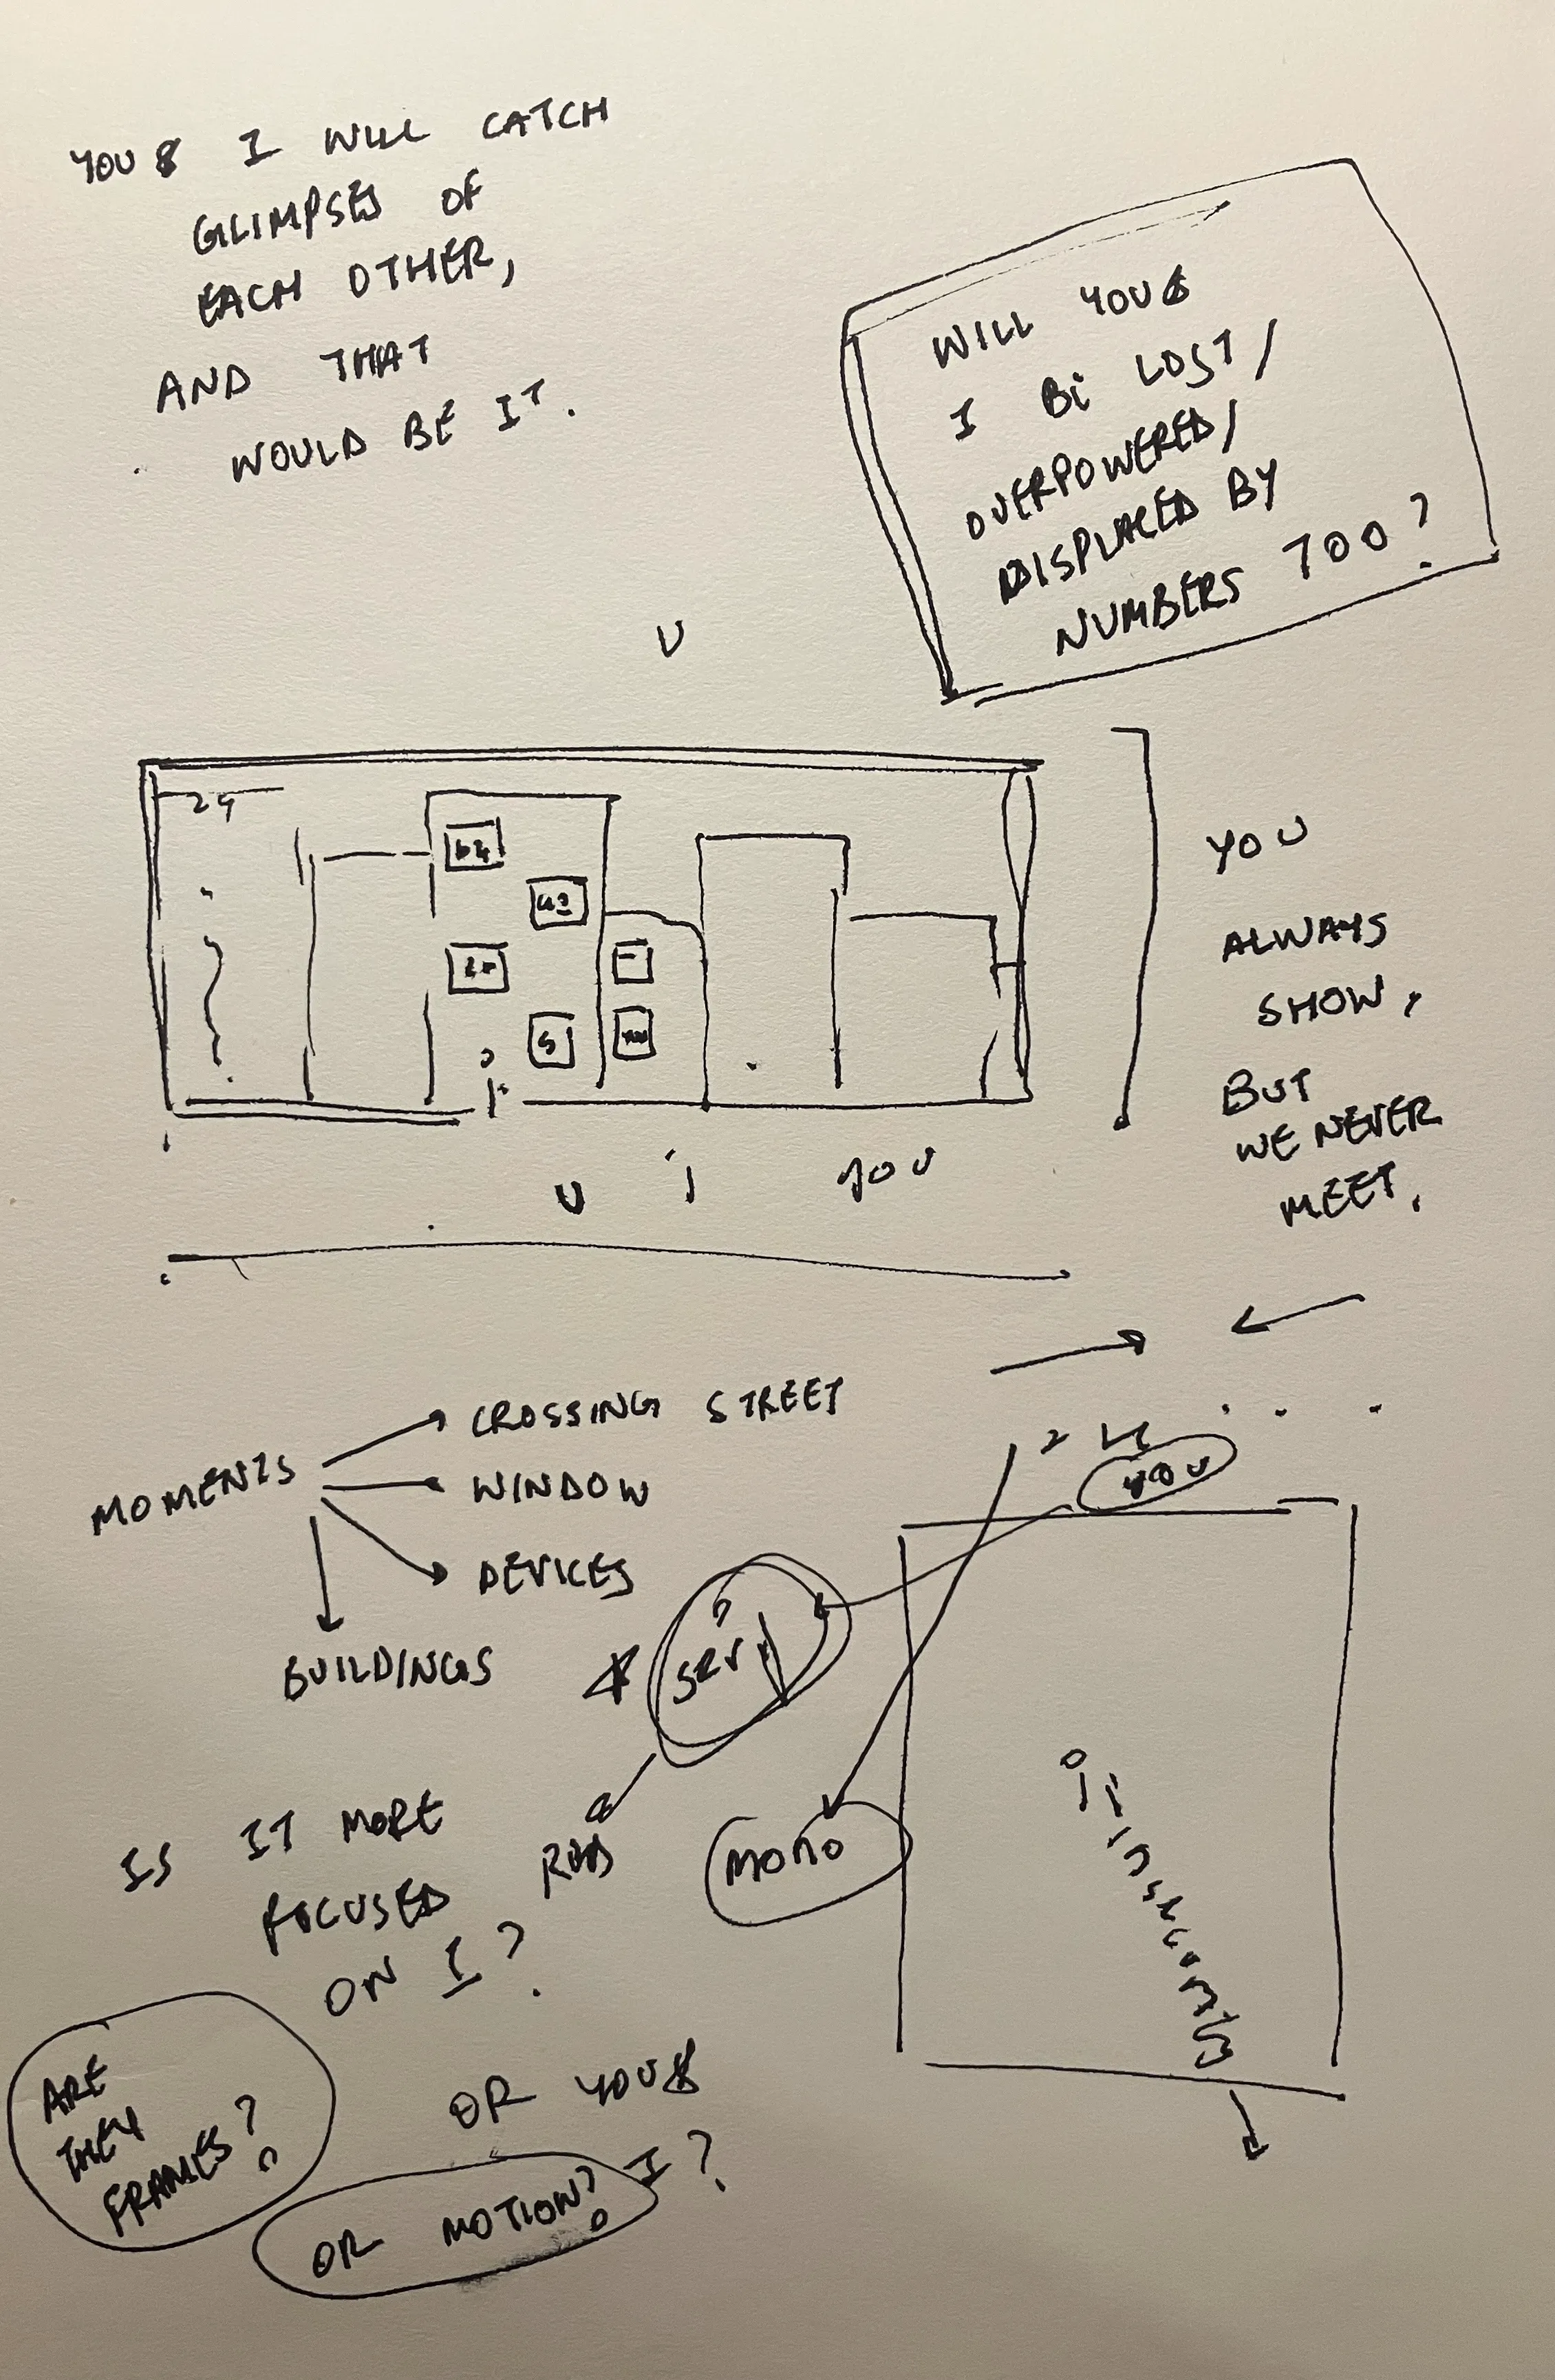 YOU & I WILL CATCH
GLIMPSES OF
EACH OTHER,
AND THAT
WOULD BE IT.
WILL YOU &
I BE LOST/
OVERPOWERED/
DISPLACED BY
NUMBERS TOO?
U
24
64
43
20
5
U
i
YOU
YOU
ALWAYS
SHOW,
BUT
WE NEVER
MEET.
MOMENTS
CROSSING STREET
WINDOW
DEVICES
BUILDINGS
YOU
SERI
MONO
IS IT MORE
FOCUSED
ON I?
OR YOU &
I?
ARE
THEY
FRAMES?
OR MOTION?